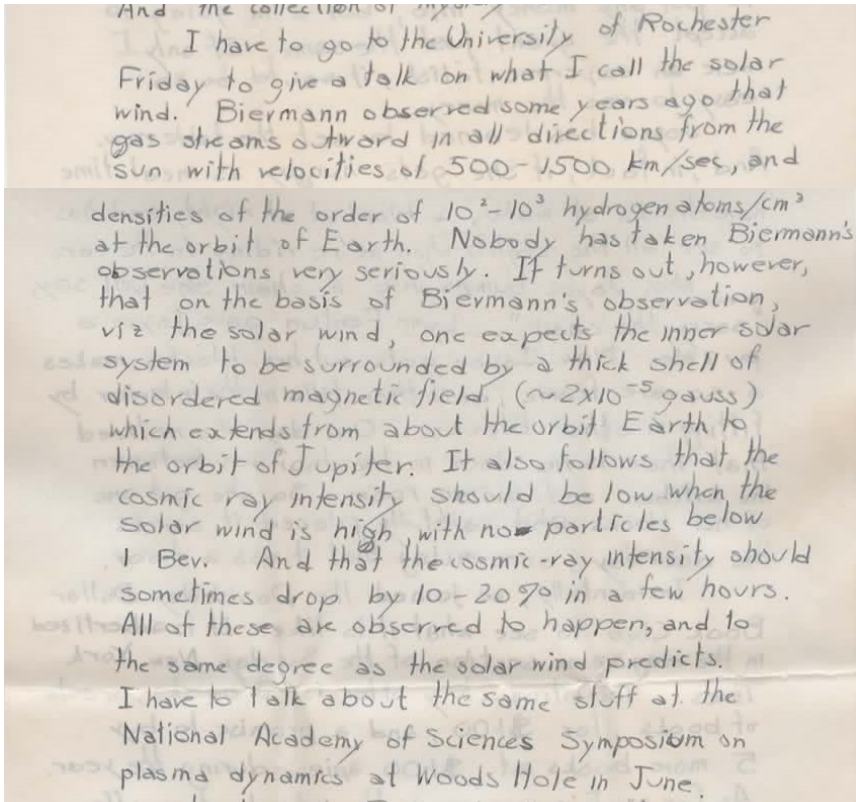 And the collection of
I have to go to the University of Rochester
Friday to give a talk on what I call the solar
wind. Biermann observed some years ago that
gas streams outward in all directions from the
sun with velocities of 500-1500 km/sec, and
densities of the order of 10²-10³ hydrogen atoms/cm³
at the orbit of Earth. Nobody has taken Biermann's
observations very seriously. It turns out, however,
that on the basis of Biermann's observation,
viz the solar wind, one expects the inner solar
system to be surrounded by a thick shell of
disordered magnetic field (~2x10⁻⁵ gauss)
which extends from about the orbit Earth to
the orbit of Jupiter. It also follows that the
cosmic ray intensity should be low when the
solar wind is high, with no particles below
1 Bev. And that the cosmic-ray intensity should
sometimes drop by 10-20% in a few hours.
All of these are observed to happen, and to
the same degree as the solar wind predicts.
I have to talk about the same stuff at the
National Academy of Sciences Symposium on
plasma dynamics at Woods Hole in June.